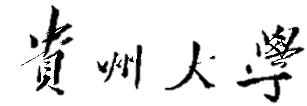 貴州大學